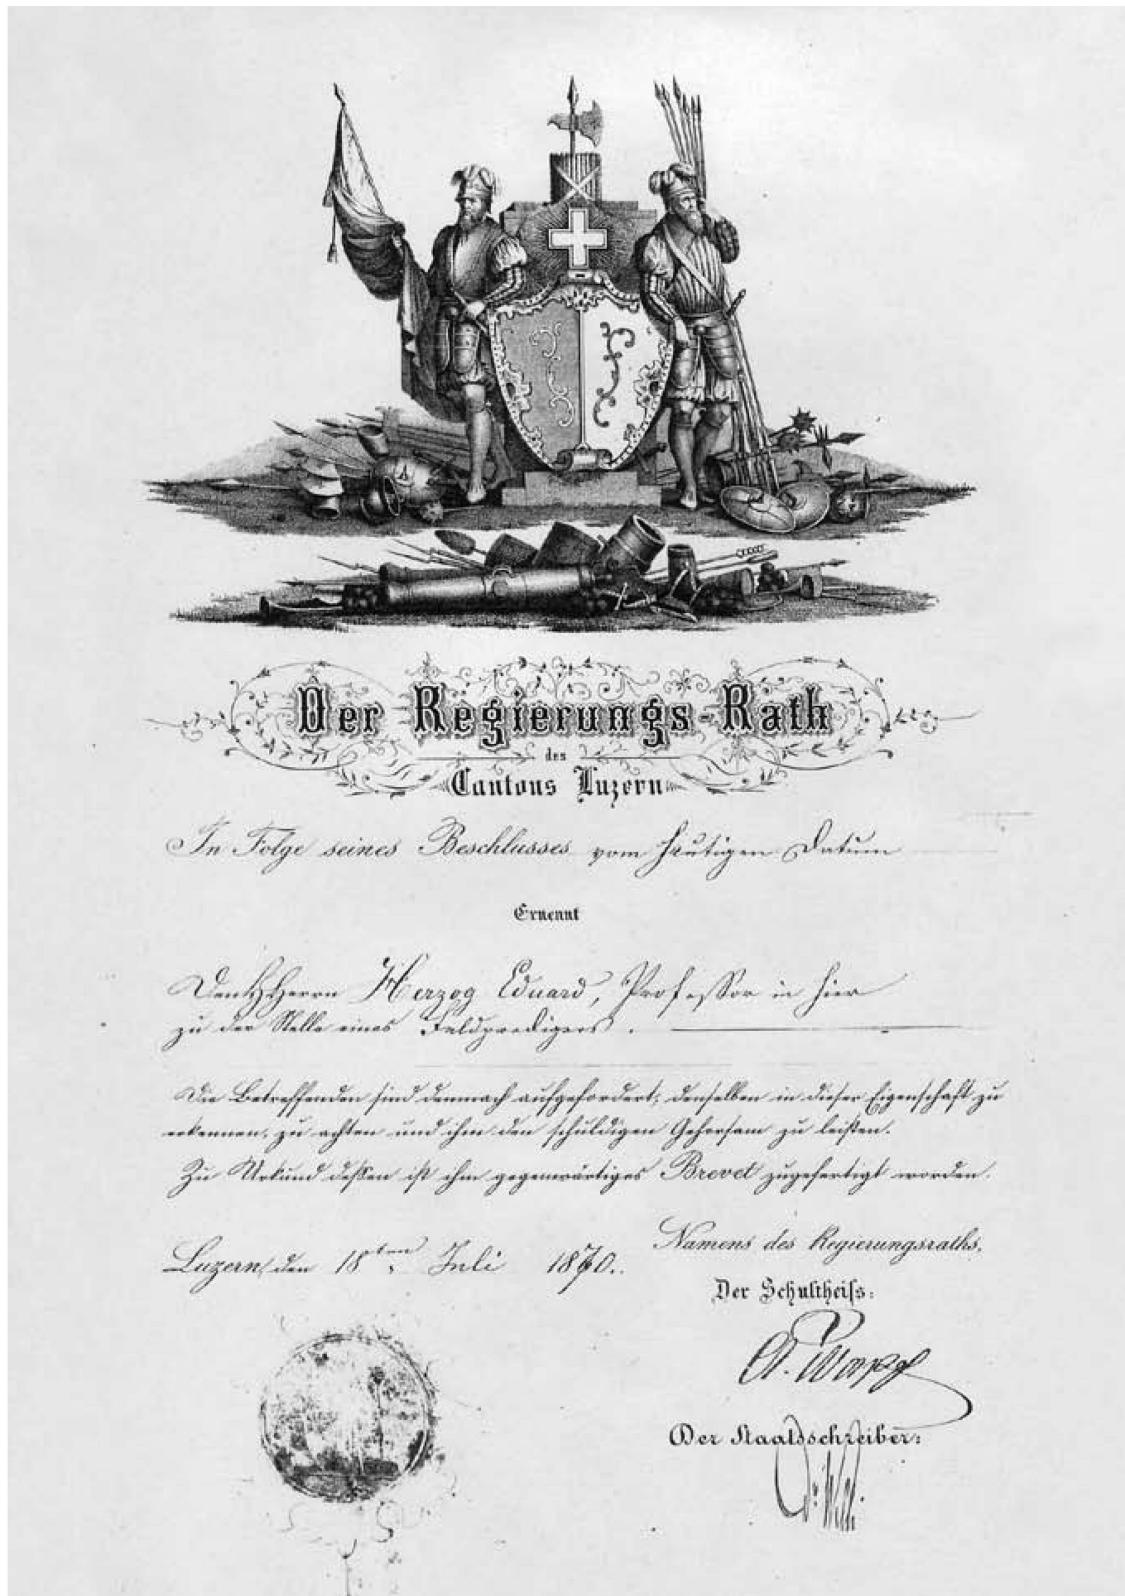 Der Regierungs-Rath
des
Cantons Luzern
In Folge seines Beschlusses vom heutigen Datum
Ernennt
Den HHerrn Herzog Eduard, Professor in hier
zu der Stelle eines Feldpredigers.
Die Betreffenden sind demnach aufgefordert, denselben in dieser Eigenschaft zu
erkennen, zu achten und ihm den schuldigen Gehorsam zu leisten.
Zu Urkund dessen ist ihm gegenwärtiges Brevet zugefertigt worden.
Luzern, den 18ten Juli 1870.
Namens des Regierungsraths,
Der Schultheiß:
Der Staatsschreiber: